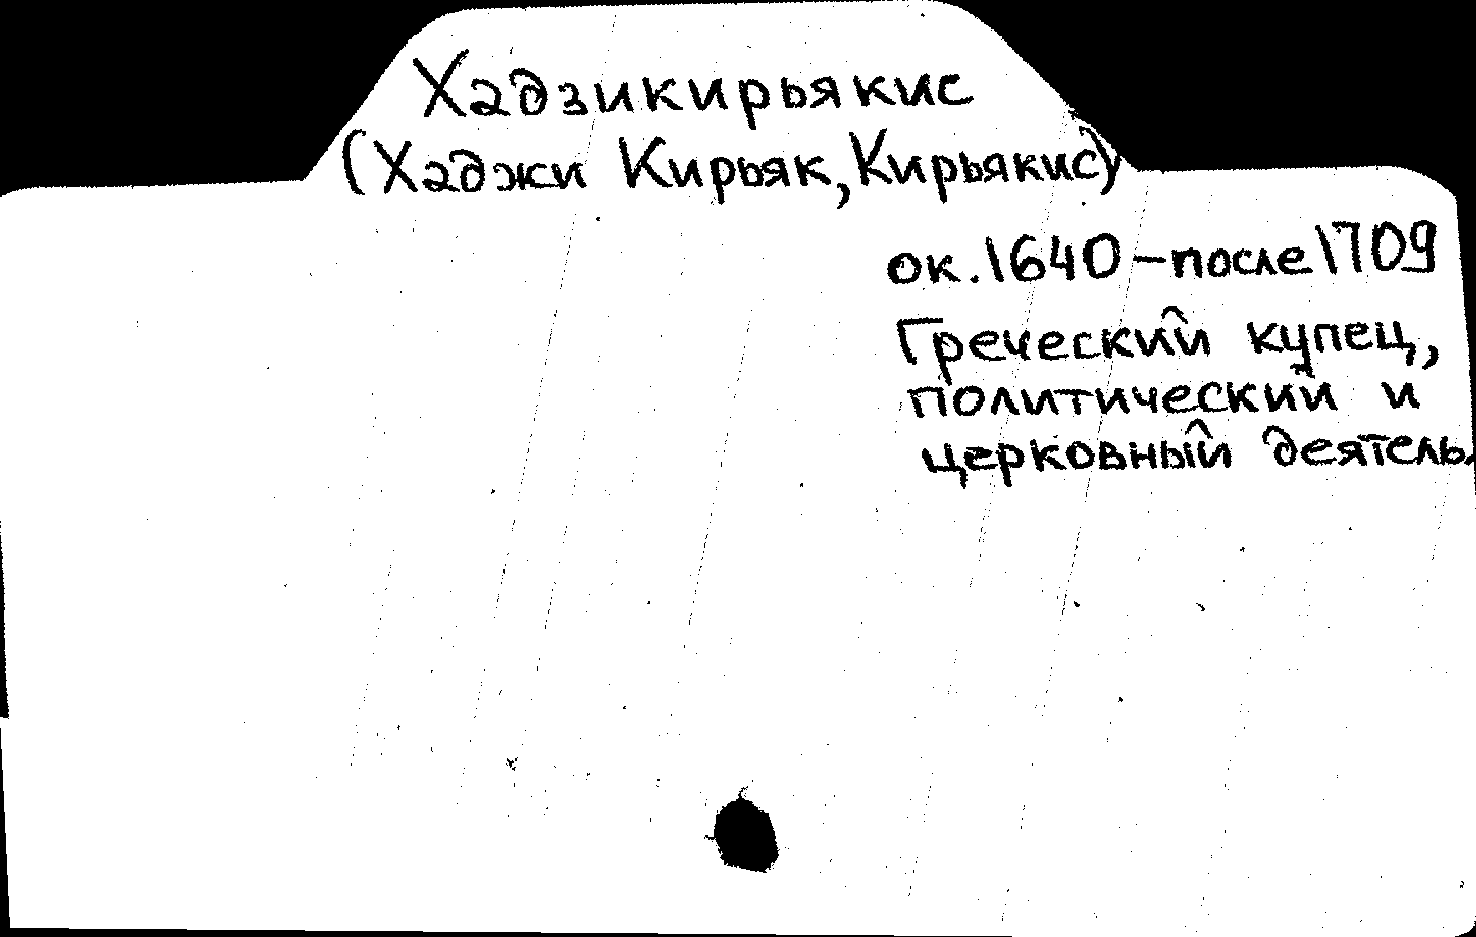 Хадзикирьякис
(Хаджи Кирьяк, Кирьякис)
ок. 1640 – после 1709
Греческий купец,
политический и
церковный деятель.